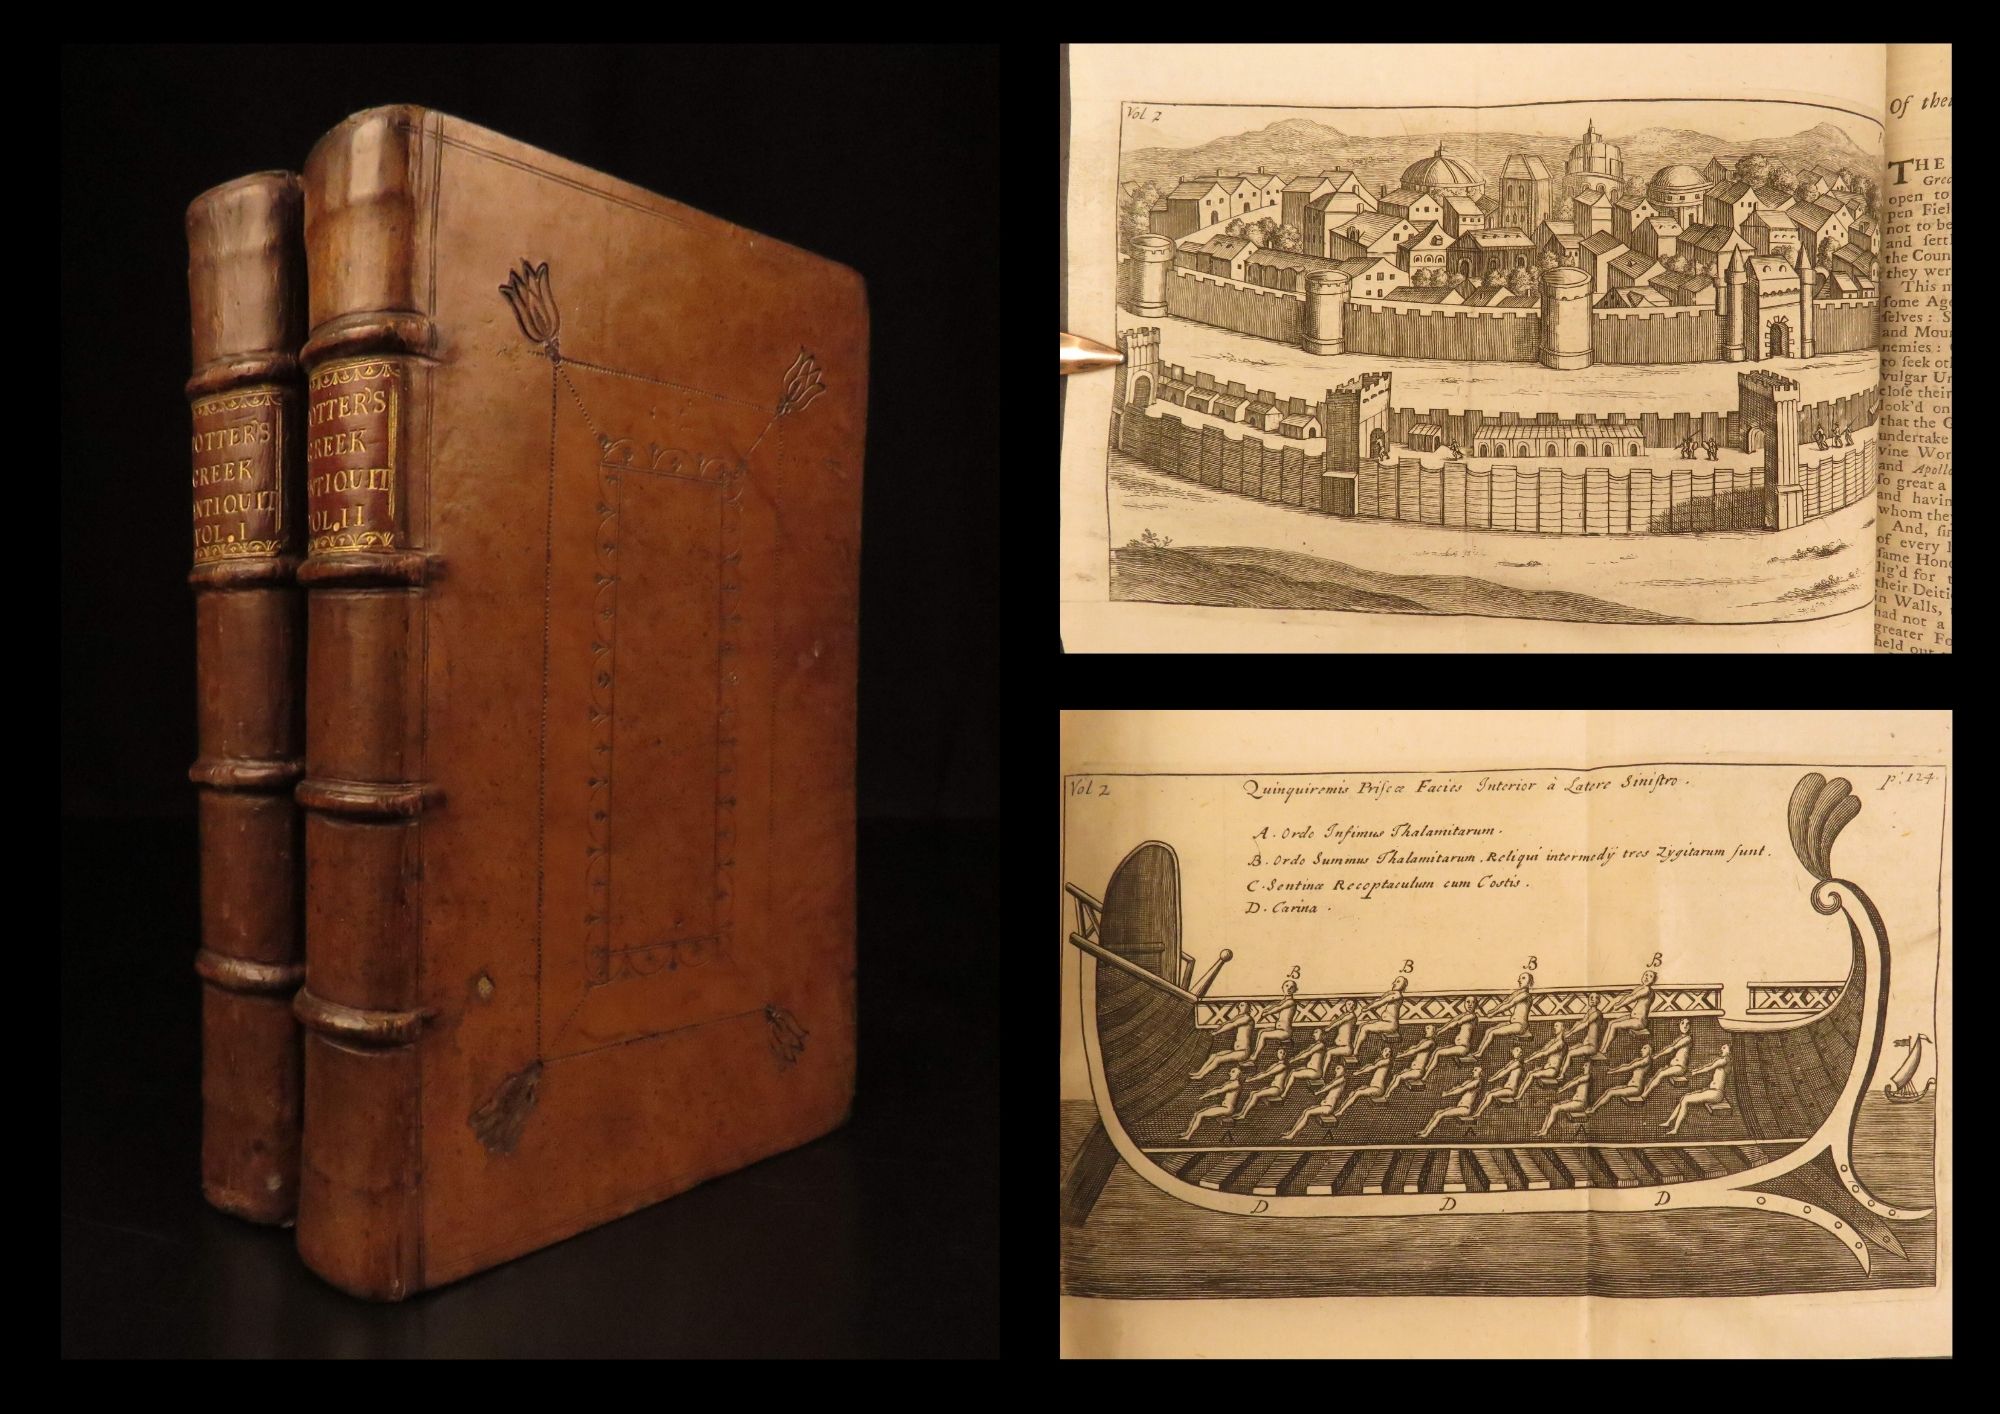 OTTER'S
GREEK
NTIQUIT
VOL. I
OTTER'S
GREEK
NTIQUIT
OL. II
Vol 2
Of the
THE
Gree
open to
pen Fiel
not to be
and ſettl
the Coun
they wer
This m
ſome Age
ſelves: S
and Moun
nemies:
to ſeek ot
vulgar Un
cloſe their
look'd on
that the G
undertake
vine Wor
and Apollo
ſo great a
and havin
whom they
And, ſin
of every
ſame Hono
lig'd for t
their Deitie
in Walls,
had not a
greater Fo
held out
Vol 2
Quinquiremis Priſcæ Facies Interior à Latere Siniſtro.
p. 124.
A. Ordo Infimus Thalamitarum.
B. Ordo Summus Thalamitarum. Reliqui intermedij tres Zygitarum ſunt.
C. Sentinæ Receptaculum cum Costis.
D. Carina.
B B B B
A A A A
D D D